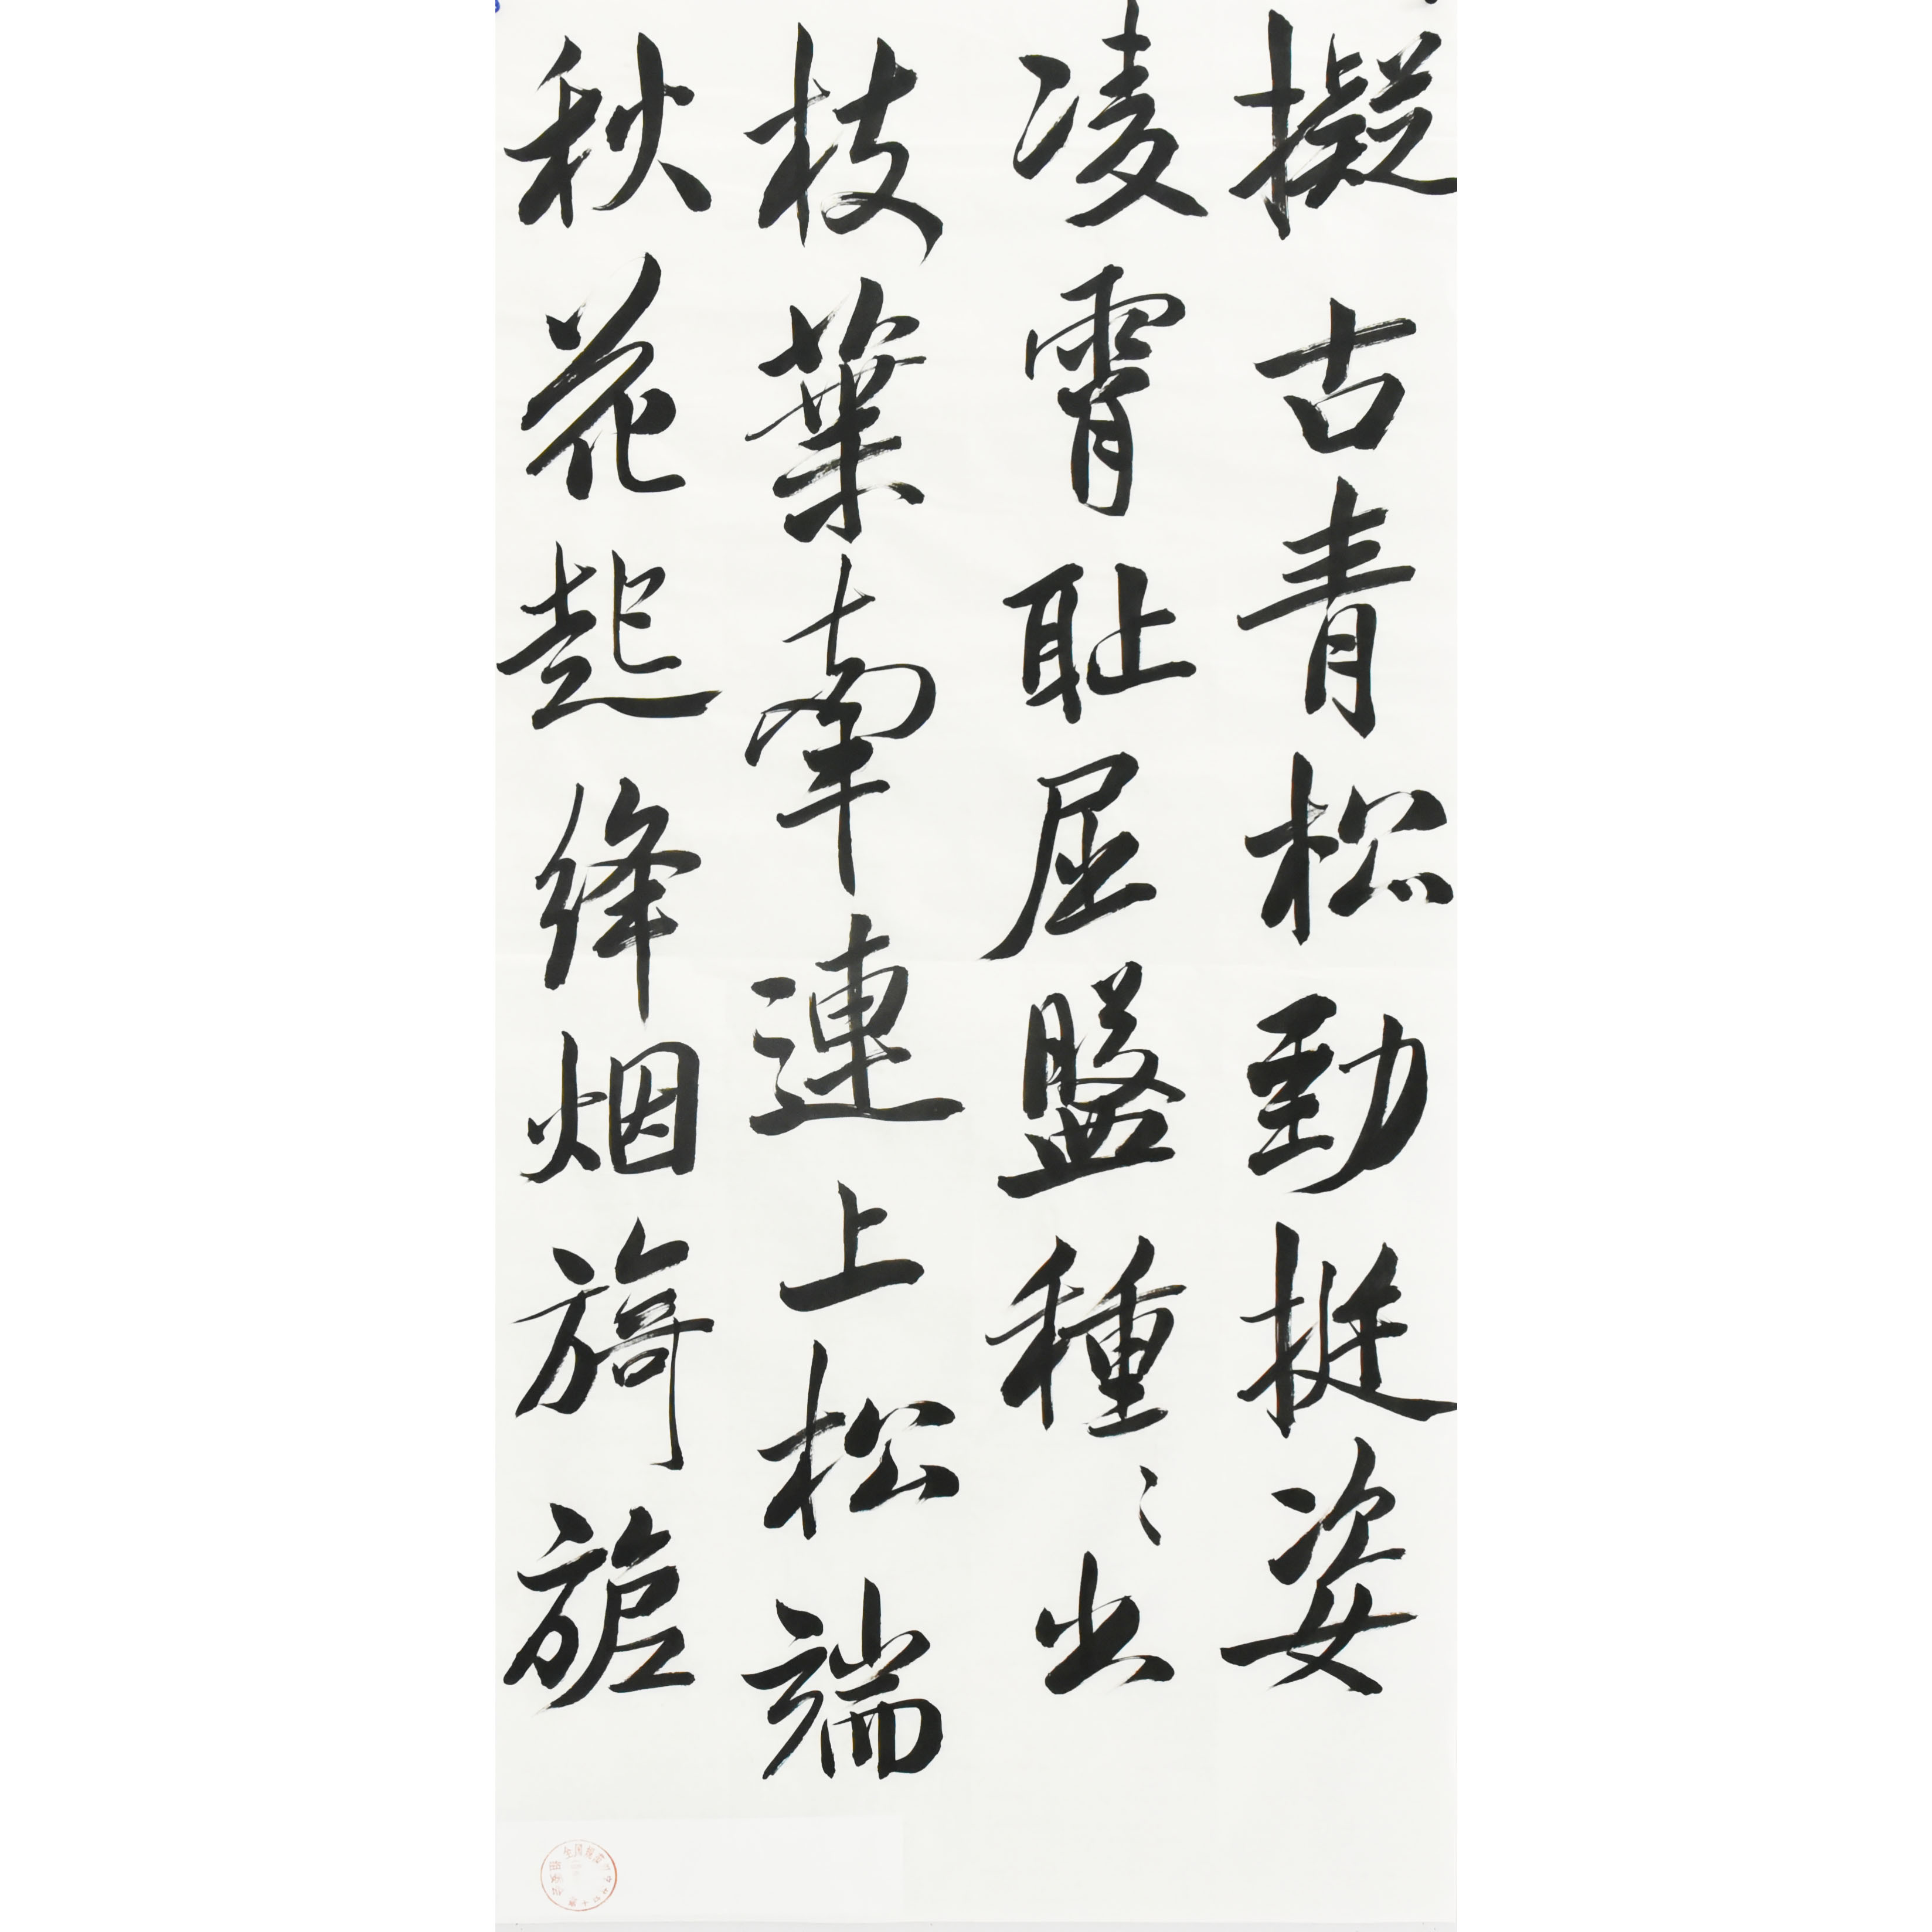 擬古青松勁挺姿
凌霄耻屈盤種〻出
枝葉牽連上松端
秋花起絳烟旖旎